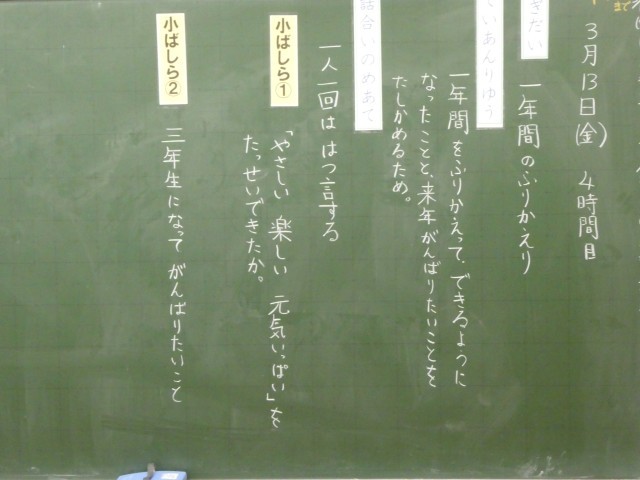 3月13日(金) 4時間目
ぎだい
一年間のふりかえり
いあんりゆう
一年間をふりかえって、できるように
なったことと、来年がんばりたいことを
たしかめるため。
話合いのめあて
一人一回は はつ言する
小ばしら①
「やさしい 楽しい 元気いっぱい」を
たっせいできたか。
小ばしら②
三年生になって がんばりたいこと